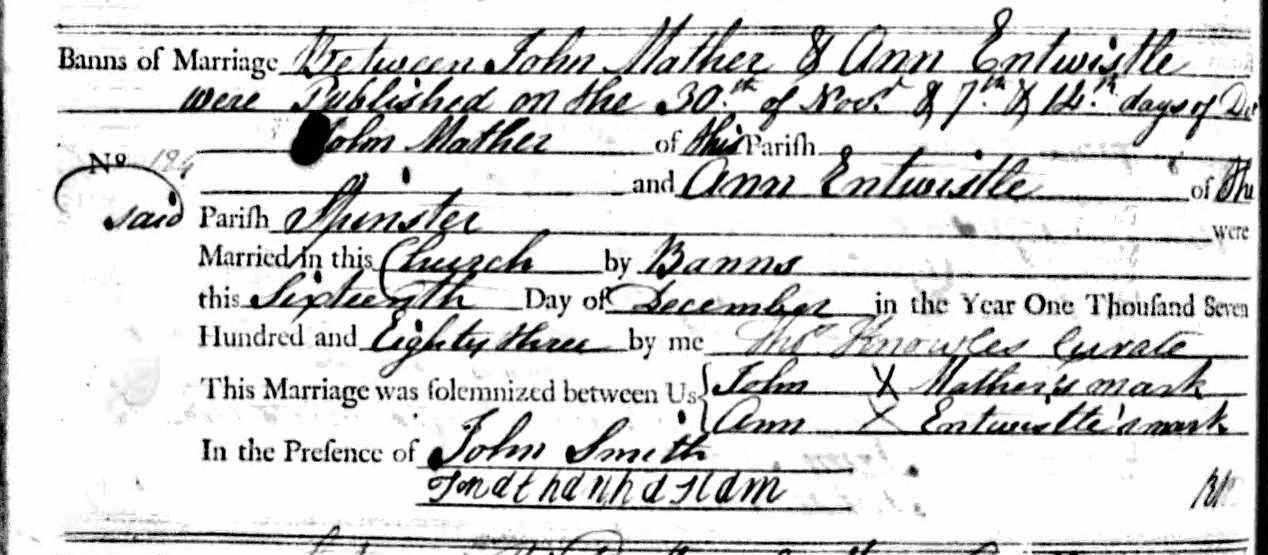 Banns of Marriage Between John Mather & Ann Entwistle
were Published on the 30.th of Novr. & 7.th & 14.th days of Der
John Mather of this Parish
No 194
and Ann Entwistle of the
said Parish Spinster were
Married in this Church by Banns
this Sixteenth Day of December in the Year One Thousand Seven
Hundred and Eighty three by me Thos. Knowles Curate
This Marriage was solemnized between Us John X Mather's mark
Ann X Entwistle's mark
In the Presence of John Smith